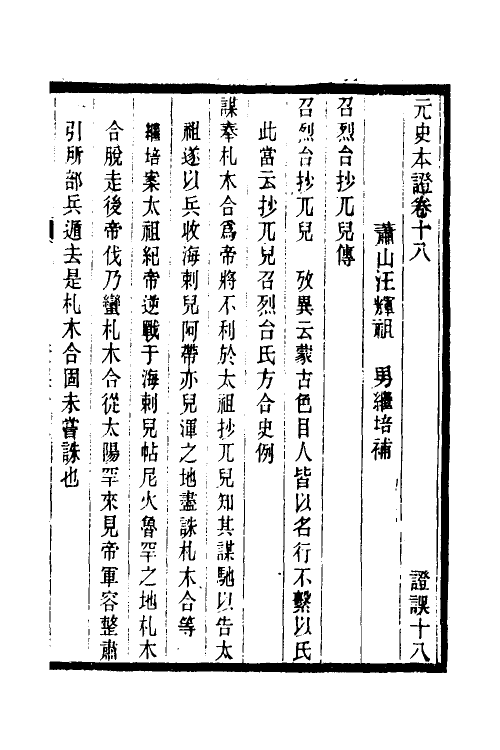 元史本證卷十八　證誤十八
蕭山汪輝祖　男繼培補
召烈台抄兀兒傳
召烈台抄兀兒　攷異云蒙古色目人皆以名行不繫以氏
此當云抄兀兒召烈台氏方合史例
謀奉札木合爲帝將不利於太祖抄兀兒知其謀馳以告太
祖遂以兵收海剌兒阿帶亦兒渾之地盡誅札木合等
繼培案太祖紀帝逆戰于海剌兒帖尼火魯罕之地札木
合脫走後帝伐乃蠻札木合從太陽罕來見帝軍容整肅
引所部兵遁去是札木合固未嘗誅也